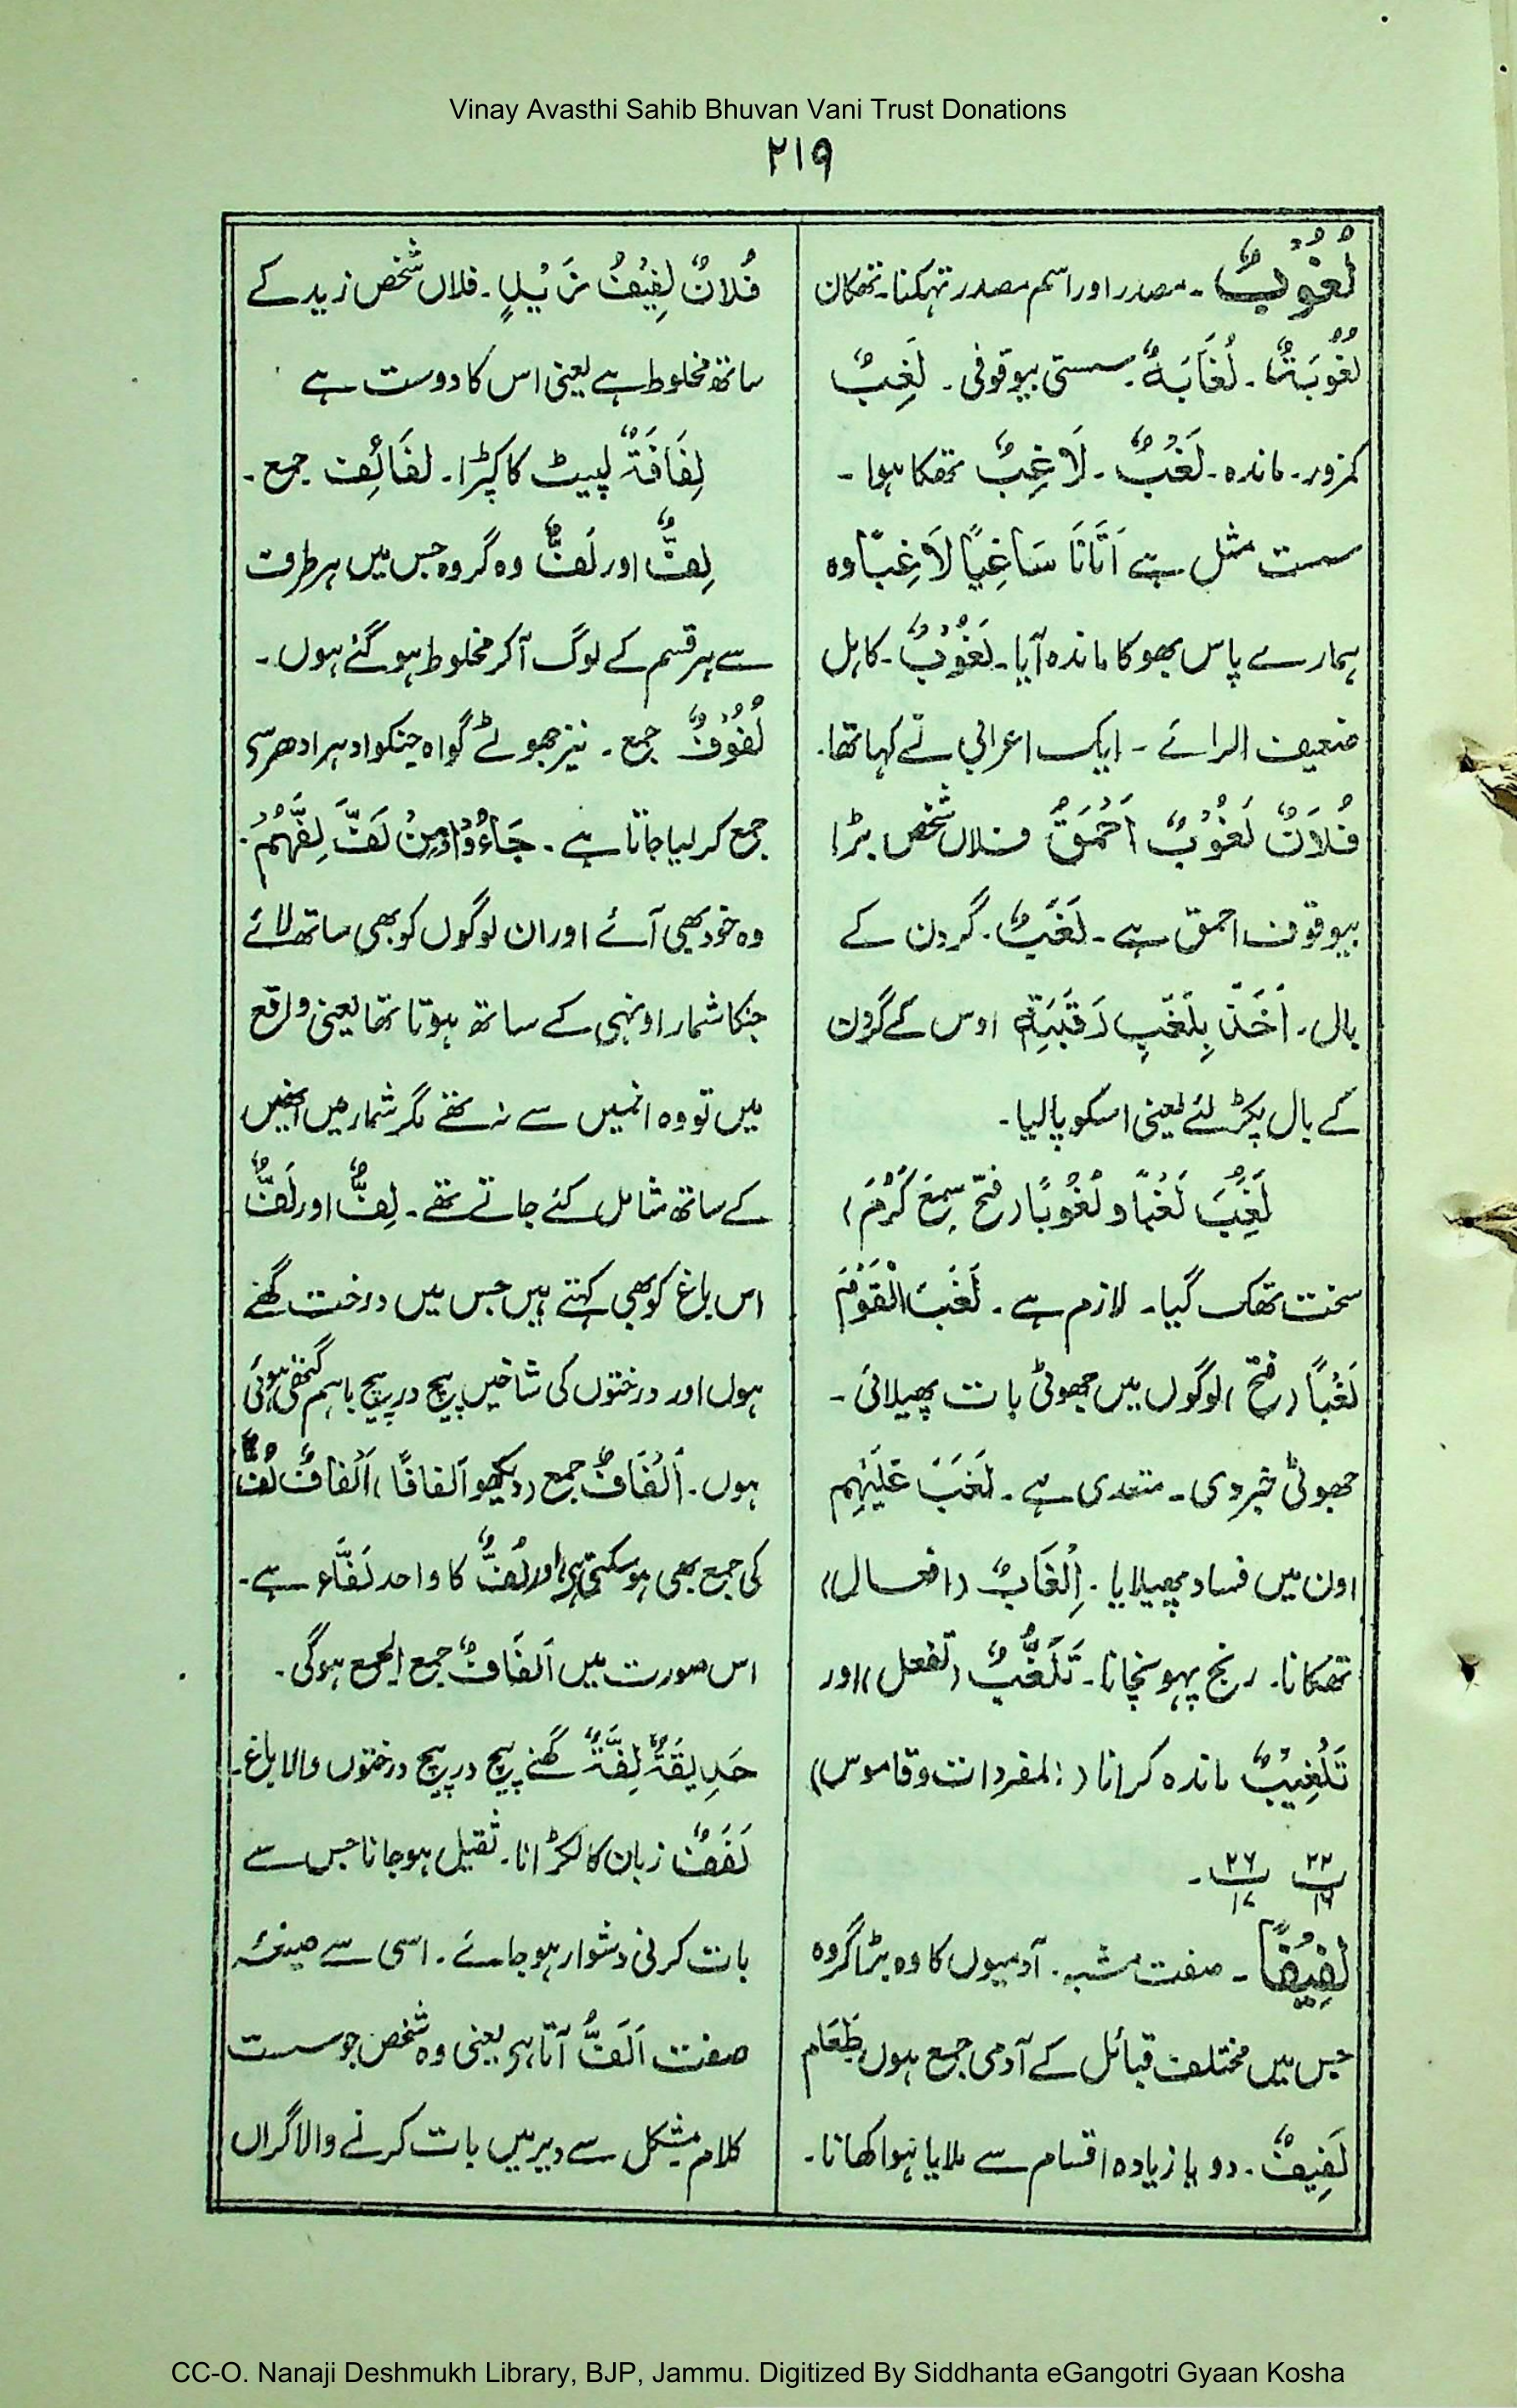 Vinay Avasthi Sahib Bhuvan Vani Trust Donations
۲۱۹
لُغُوْبٌ ۔ مصدر اور اسم مصدر تہکنا۔ تھکان
لُغُوْبَۃٌ ۔ لُغَابَۃٌ ۔ سستی بیوقوفی ۔ لَغِبٌ
کمزور۔ ماندہ ۔ لَغْبٌ ۔ لَاغِبٌ تھکا ہوا ۔
سست مثل ہے اَتَانَا سَاغِبًا لَاغِبًا وہ
ہمارے پاس بھوکا ماندہ آیا۔ لَغُوْبٌ ۔ کاہل
ضعیف الرائے ۔ ایک اعرابی نے کہا تھا۔
فُلَانٌ لَغُوْبٌ اَحْمَقُ فلاں شخص بڑا
بیوقوف احمق ہے ۔ لَغَبٌ ۔ گردن کے
بال ۔ اَخَذَ بِلَغَبِ رَقَبَتِہٖ اوس کے گردن
کے بال پکڑ لئے یعنی اسکو پالیا ۔
لَغِبَ لَغْبًا و لُغُوْبًا (فتح سَمِعَ کَرُمَ)
سخت تھک گیا ۔ لازم ہے ۔ لَغَبَ الْقَوْمَ
لَغْبًا (فتح) لوگوں میں جھوٹی بات پھیلائی ۔
جھوٹی خبر دی ۔ متعدی ہے ۔ لَغَبَ عَلَیْہِم
اون میں فساد پھیلایا ۔ اِلْغَابٌ (افعال)
تھکانا۔ رنج پہونچانا ۔ تَلَغُّبٌ (تفعل) اور
تَلْغِیْبٌ ماندہ کرانا (المفردات وقاموس)
۲۲ ۲۶
۱۶ ۱۷ ۔
لَفِیْفًا ۔ صفت مشبہ ۔ آدمیوں کا وہ بڑا گروہ
جس میں مختلف قبائل کے آدمی جمع ہوں طَعَام
لَفِیْفٌ ۔ دو یا زیادہ اقسام سے ملایا ہوا کھانا ۔
فُلَانٌ لَفِیْفُ زَیْدٍ ۔ فلاں شخص زید کے
ساتھ مخلوط ہے یعنی اس کا دوست ہے
لِفَافَۃٌ لپیٹ کا کپڑا ۔ لفَائِف جمع ۔
لِفٌّ اور لَفٌّ وہ گروہ جس میں ہر طرف
سے ہر قسم کے لوگ آ کر مخلوط ہو گئے ہوں ۔
لُفُوْفٌ جمع ۔ نیز جھوٹے گواہ جنکو ادہر ادھر سے
جمع کر لیا جاتا ہے ۔ جَاءُوْا وَمَنْ لَفَّ لِفَّہُمْ ۔
وہ خود بھی آئے اور ان لوگوں کو بھی ساتھ لائے
جنکا شمار اونہی کے ساتھ ہوتا تھا یعنی واقع
میں تو وہ انمیں سے نہ تھے مگر شمار میں انھیں
کے ساتھ شامل کئے جاتے تھے ۔ لِفٌّ اور لَفٌّ
اس باغ کو بھی کہتے ہیں جس میں درخت گھنے
ہوں اور درختوں کی شاخیں پیچ در پیچ باہم گتھی ہوئی
ہوں ۔ اَلْفَافٌ جمع (دیکھو اَلفافًا) اَلْفافٌ لُفٌّ
کی جمع بھی ہوسکتی ہے اور لُفٌّ کا واحد لَفَّاء ہے ۔
اس صورت میں اَلفَافٌ جمع الجمع ہوگی ۔
حَدِیقَۃٌ لِفَّۃٌ گھنے پیچ در پیچ درختوں والا باغ ۔
لَفَفٌ زبان کا لکڑانا ۔ ثقیل ہو جانا جس سے
بات کرنی دشوار ہو جائے ۔ اسی سے صیغہ
صفت اَلَفُّ آتا ہے یعنی وہ شخص جو سست
کلام مشکل سے دیر میں بات کرنے والا گراں
CC-O. Nanaji Deshmukh Library, BJP, Jammu. Digitized By Siddhanta eGangotri Gyaan Kosha